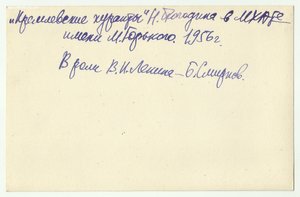 „Кремлевские куранты" Н. Погодина в МХАТе
имени М. Горького. 1956 г.
В роли В.И. Ленина – Б. Смирнов.